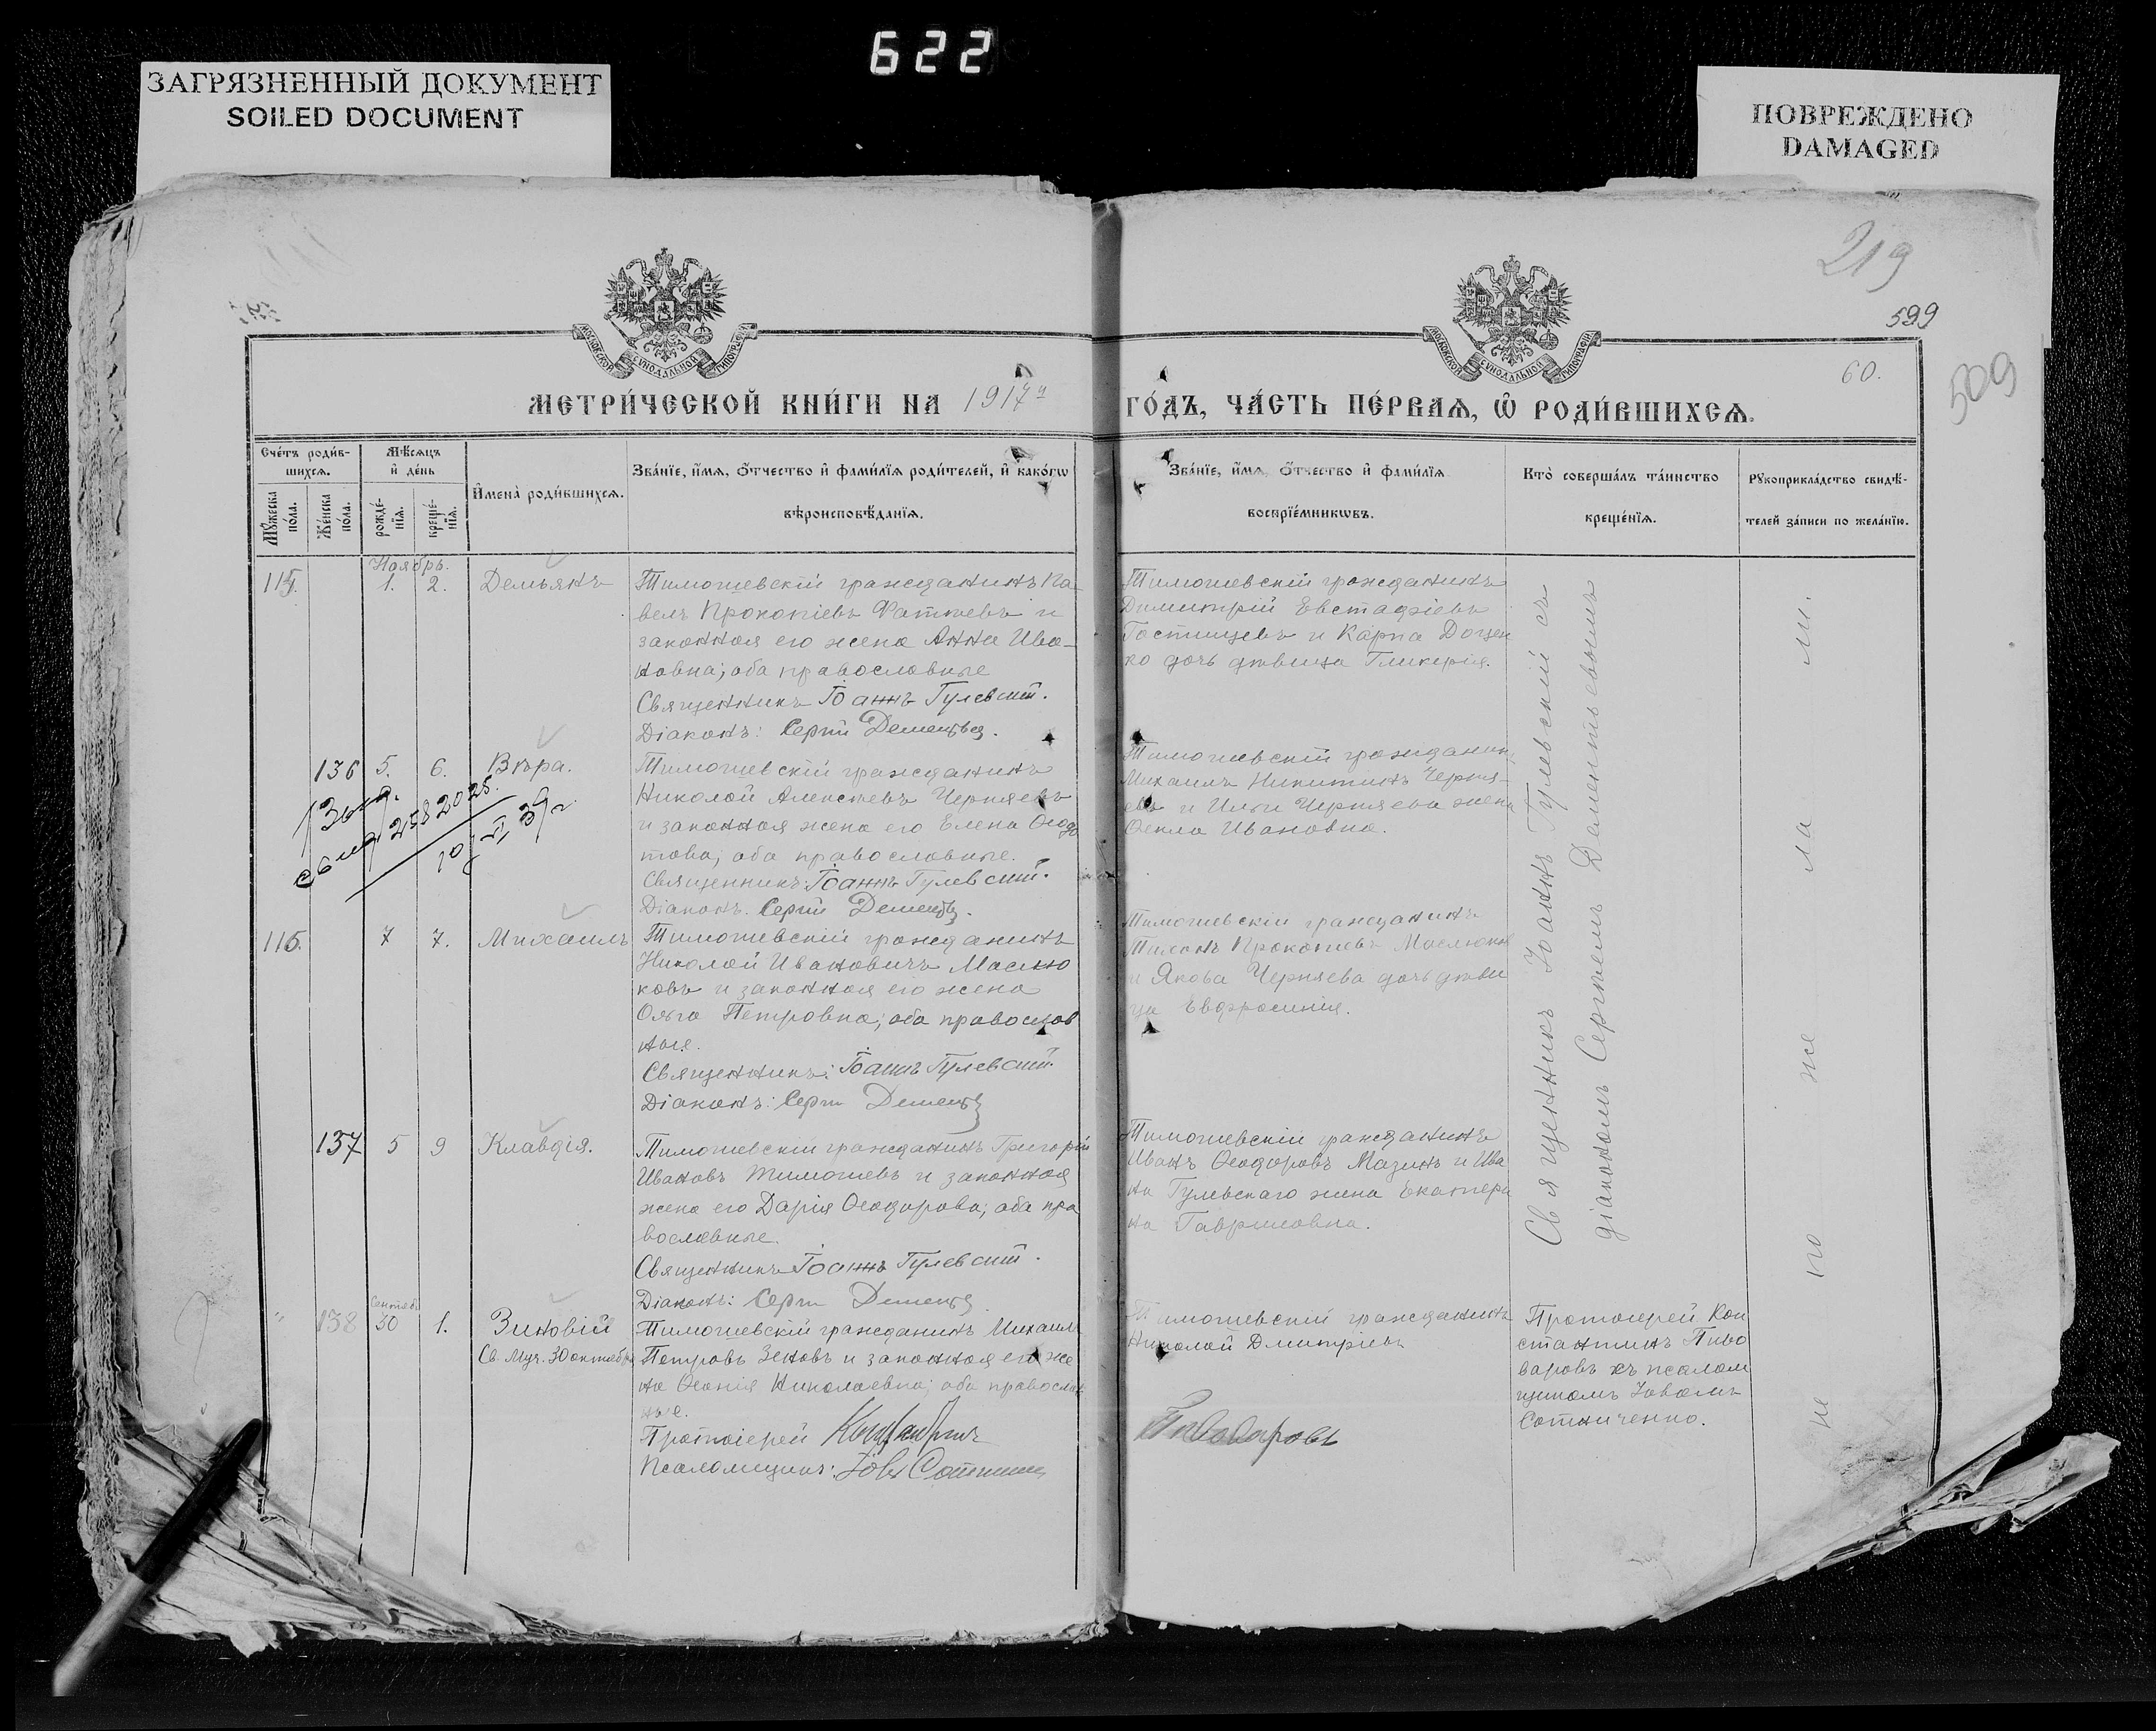 622
ЗАГРЯЗНЕННЫЙ ДОКУМЕНТ
SOILED DOCUMENT
ПОВРЕЖДЕНО
DAMAGED
219
599
60.
509
МОСКОВСКОЙ СѴНОДАЛЬНОЙ ТИПОГРАФІИ
МОСКОВСКОЙ СѴНОДАЛЬНОЙ ТИПОГРАФІИ
МЕТРИ́ЧЕСКОЙ КНИ́ГИ НА 1917й ГО́ДЪ, ЧА́СТЬ ПЕ́РВАѦ, Ѡ҆ РОДИ́ВШИХСѦ.
Сче́тъ роди́в-
шихсѧ.
Мꙋ́жеска по́ла.
Же́нска по́ла.
Мѣ́сѧцъ
и҆ де́нь
рожде́-
нїѧ.
креще́-
нїѧ.
И҆мена̀ роди́вшихсѧ.
Зва́нїе, и҆́мѧ, ѻ҆́тчество и҆ фами́лїѧ роди́телей, и҆ како́гѡ
вѣроисповѣ́данїѧ.
Зва́нїе, и҆́мѧ, ѻ҆́тчество и҆ фами́лїѧ
воспрїе́мникѡвъ.
Кто̀ соверша́лъ та́инство
креще́нїѧ.
Рꙋкоприкла́дство свидѣ́-
телей за́писи по жела́нїю.
Ноябрь.
115. 1. 2. Демьянъ
Тимошевскій гражданинъ Па
велъ Прокопіевъ Фатѣевъ и
законная его жена Анна Ива-
новна; оба православные
Священникъ Іоаннъ Гулевскій.
Діаконъ: Сергій Дементьев.
Тимошевскій гражданинъ
Димитрій Евстафіевъ
Гостищевъ и Карпа Доцен
ко дочь дѣвица Гликерія.
136 5. 6. Вѣра.
Тимошевскій гражданинъ
Николай Алексѣевъ Черняевъ
и законная жена его Елена Ѳедо
това; оба православные.
Священникъ: Іоаннъ Гулевскій.
Діаконъ. Сергій Дементьев.
Тимошевскій гражданин
Михаилъ Никитинъ Черня-
евъ и Ильи Черняева жена
Ѳекла Ивановна.
116. 7 7. Михаилъ
Тимошевскій гражданинъ
Николай Ивановичъ Маслю
ковъ и законная его жена
Ольга Петровна; оба православ
ные.
Священникъ: Іоаннъ Гулевскій.
Діаконъ: Сергій Дементьев
Тимошевскій гражданинъ
Тихонъ Прокопіевъ Маслюков
и Якова Черняева дочь дѣви
ца Евфросинія.
137 5 9 Клавдія.
Тимошевскій гражданинъ Григорій
Ивановъ Тимошевъ и законная
жена его Дарія Ѳеодорова; оба пра
вославные.
Священникъ Іоаннъ Гулевскій.
Діаконъ: Сергій Дементьев
Тимошевскій гражданинъ
Иванъ Ѳеодоровъ Мазинъ и Ива
на Гулевскаго жена Екатери
на Гавриловна.
Священникъ Іоаннъ Гулевскій съ
діакономъ Сергѣемъ Дементьевымъ
138 30 1. Зиновій
Св. Муч. 30 октября
Тимошевскій гражданинъ Михаилъ
Петровъ Зеновъ и законная его же
на Ѳеонія Николаевна; оба православ
ные.
Протоіерей Константинъ Пивоваровъ
Псаломщикъ: Іовъ Сотниченко
Тимошевскій гражданинъ
Николай Дмитріевъ
Протоіерей Кон
стантинъ Пиво
варовъ съ псалом
щикомъ Іовомъ
Сотниченко.
не по же ла ли.